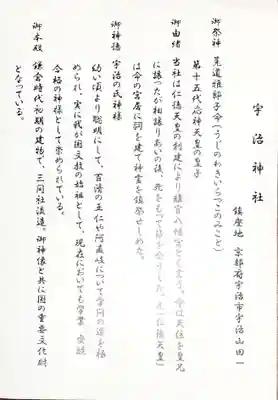 宇治神社
鎮座地 京都府宇治市宇治山田一
御祭神 菟道稚郎子命(うじのわきいらつこのみこと)
第十五代應神天皇の皇子
御由緒 当社は仁徳天皇の創建により離宮八幡宮と
命は天位を皇兄
に譲ったが相譲りあいの後、死をもって
仁徳天皇
は命の宮居に祠を建て神霊を鎮祭せしめた。
御神徳 宇治の氏神様
幼い頃より聡明にして、百済の王仁や阿直岐について学問の道を極
められ、実に我が国文教の始祖として、現在においても学業 受験
合格の神様として崇められている。
御本殿 鎌倉時代初期の建物で、三間社流造。御神像と共に国の重要文化財
となっている。